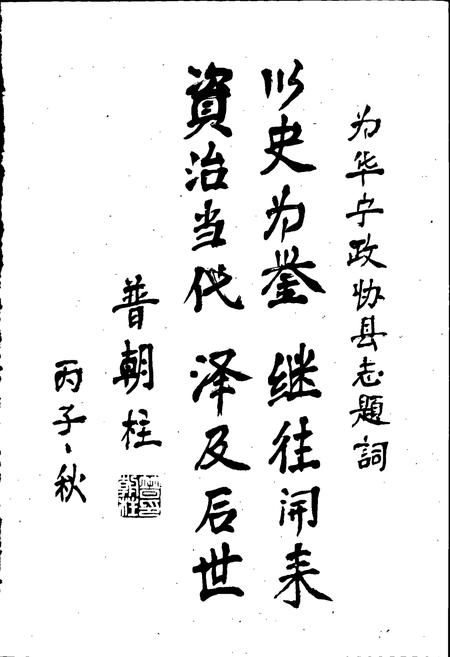 为华宁政协县志题詞
以史为鉴 继往开来
資治当代 泽及后世
普朝柱
丙子、秋